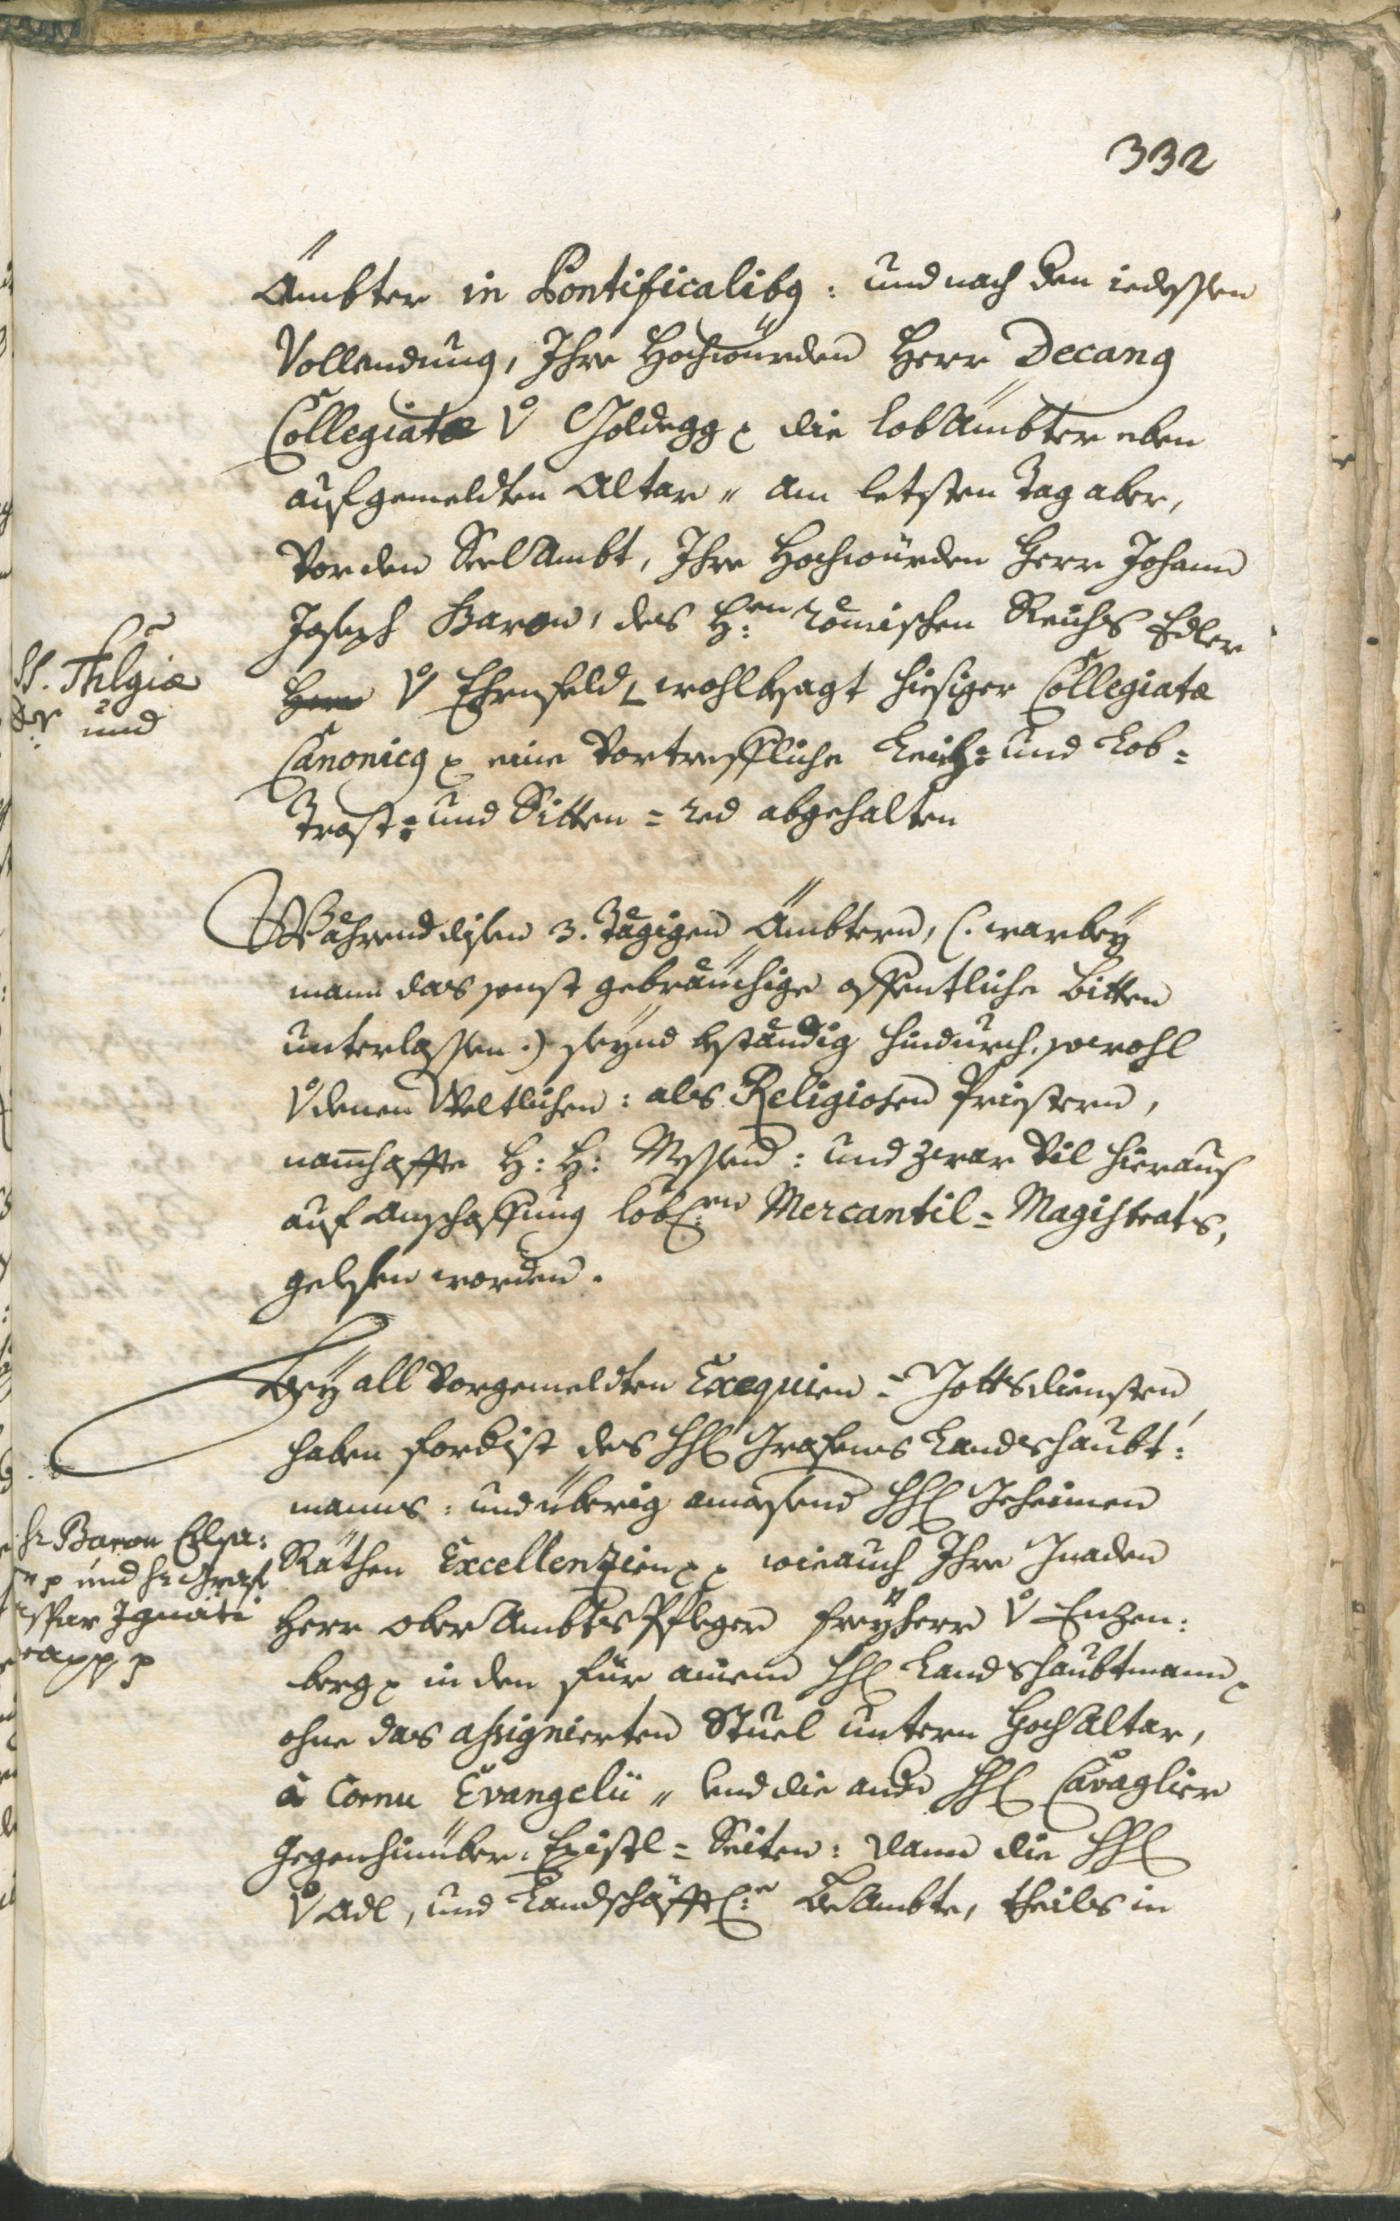 332
Ämbter in Pontificalibg: und nach den iedessen
Vollendung, Ihre Hochwürden Herr Decang
Collegiatæ V Goldegg p die lob Ämbter eben
auf gemeldten Altar „ Am letsten Tag aber,
Vor den Seel Ambt, Ihre Hochwürden Herr Johann
Joseph Baron, des H:en Römischen Reichs Edler
Herr V Ehrnfeld wohlbesagt hiesiger Collegiatæ
SS. Thlgiæ
Dr: und
Canonicg p eine Vortreffliche Leich= und Lob=
Trost= und Sitten=red abgehalten
Während disen 3. Tägigen Ämbtern, (: warbey
mann das sonst gebräuchige offentliche bitten
unterlassen:) seynd beständig hindurch, sowohl
V denen Weltlichen: als Religiosen Priestern,
namhaffte H: H: Messen: und zwar Vil hieraus
auf Anschaffung lobl:en Mercantil=Magistrats,
gelesen worden.
Bey all Vorgemeldten Exequien=Gottsdiensten,
haben fordist des HH Grafens Landshaubt:
manns: und überig amesend HH Geheimen
Räthen Excellenzien p p wie auch Ihre Gnaden
hr Baron
p und hr Graf
Ignati
Herr ober Ambts Pfleger Freyherr V Enzen:
berg p in den für ainem HH Landshaubtmann p
ohne das assignierten Stuel untern Hoch Altar,
à Cornu Evangelii „ und die andn HH Cavaglier
gegenhinüber: Epistl=Seiten: dann die HH
V Adl, und Landschäfftl:e Beambte, theils in